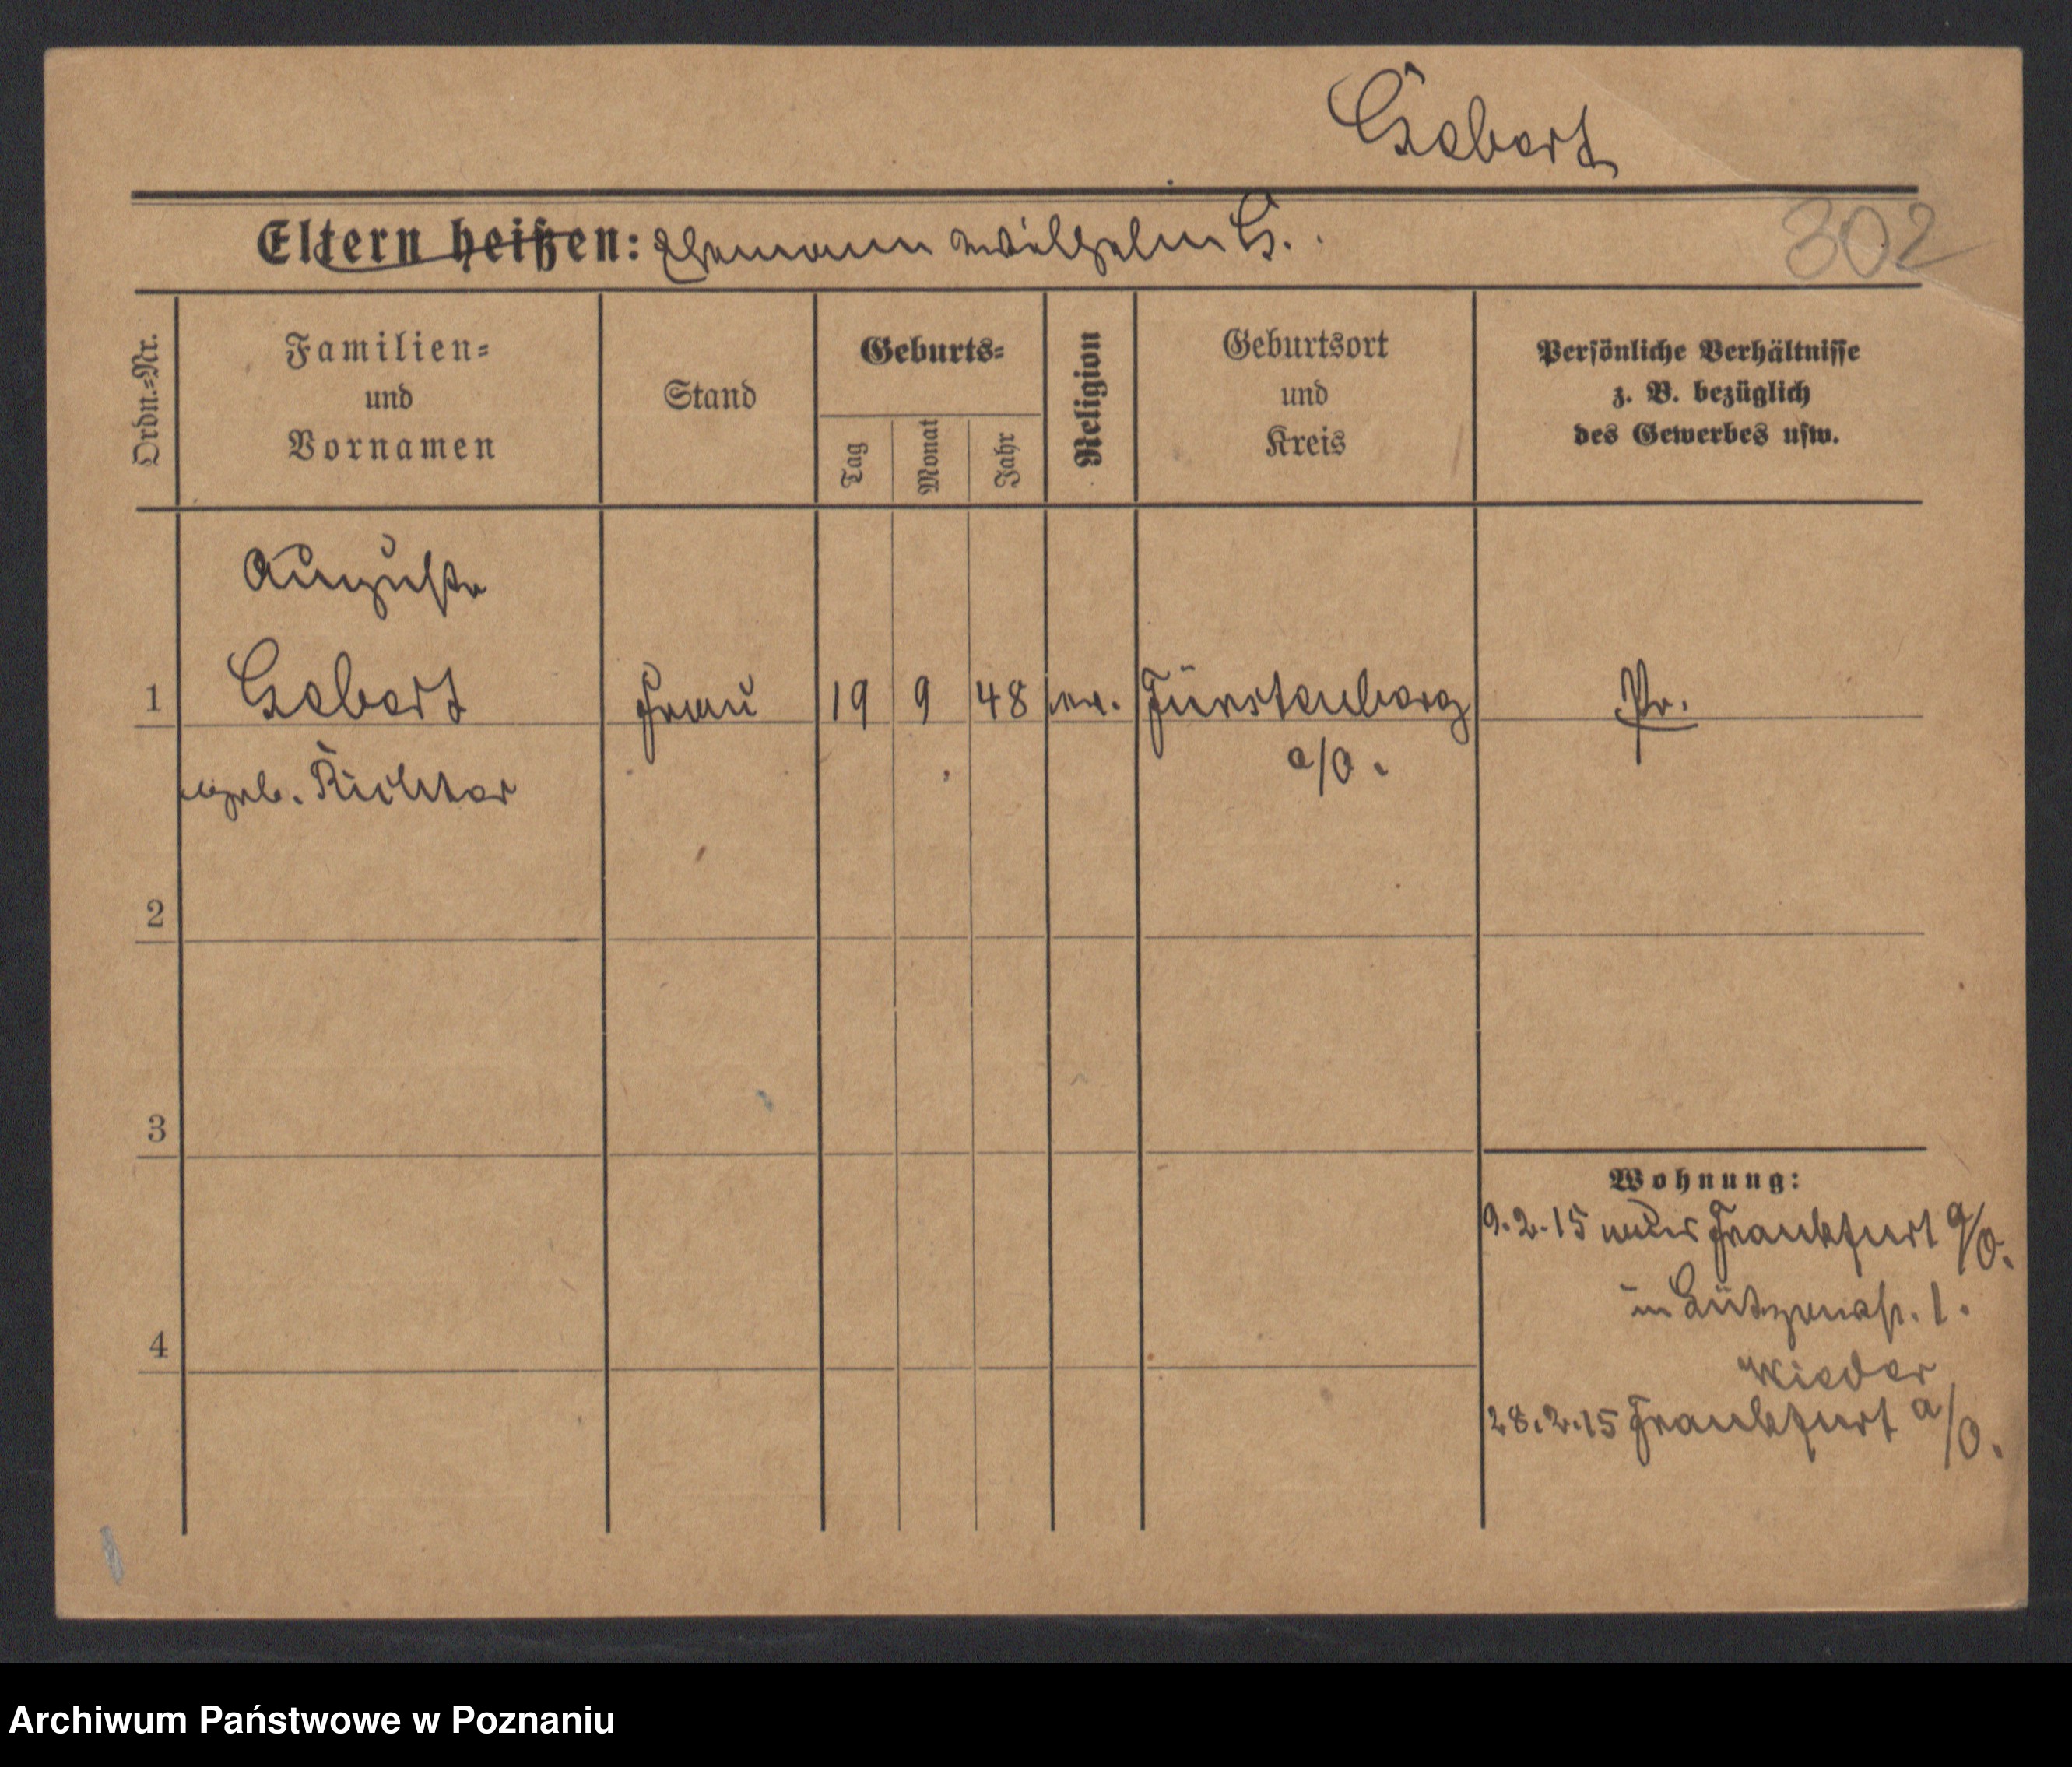 Gebert
Eltern heißen: Ehemann Wilhelm G.
302
Ordn.=Nr.
Familien=
und
Vornamen
Stand
Geburts=
Tag
Monat
Jahr
Religion
Geburtsort
und
Kreis
Persönliche Verhältnisse
z. B. bezüglich
des Gewerbes usw.
Auguste
1 Gebert Frau 19 9 48 ev. Fürstenberg Pr.
a/O.
geb. Richter
2
3
Wohnung:
9.2.15 aus Frankfurt a/O.
in Lützenstr. 1.
4
wieder
28.2.15 Frankfurt a/O.
Archiwum Państwowe w Poznaniu